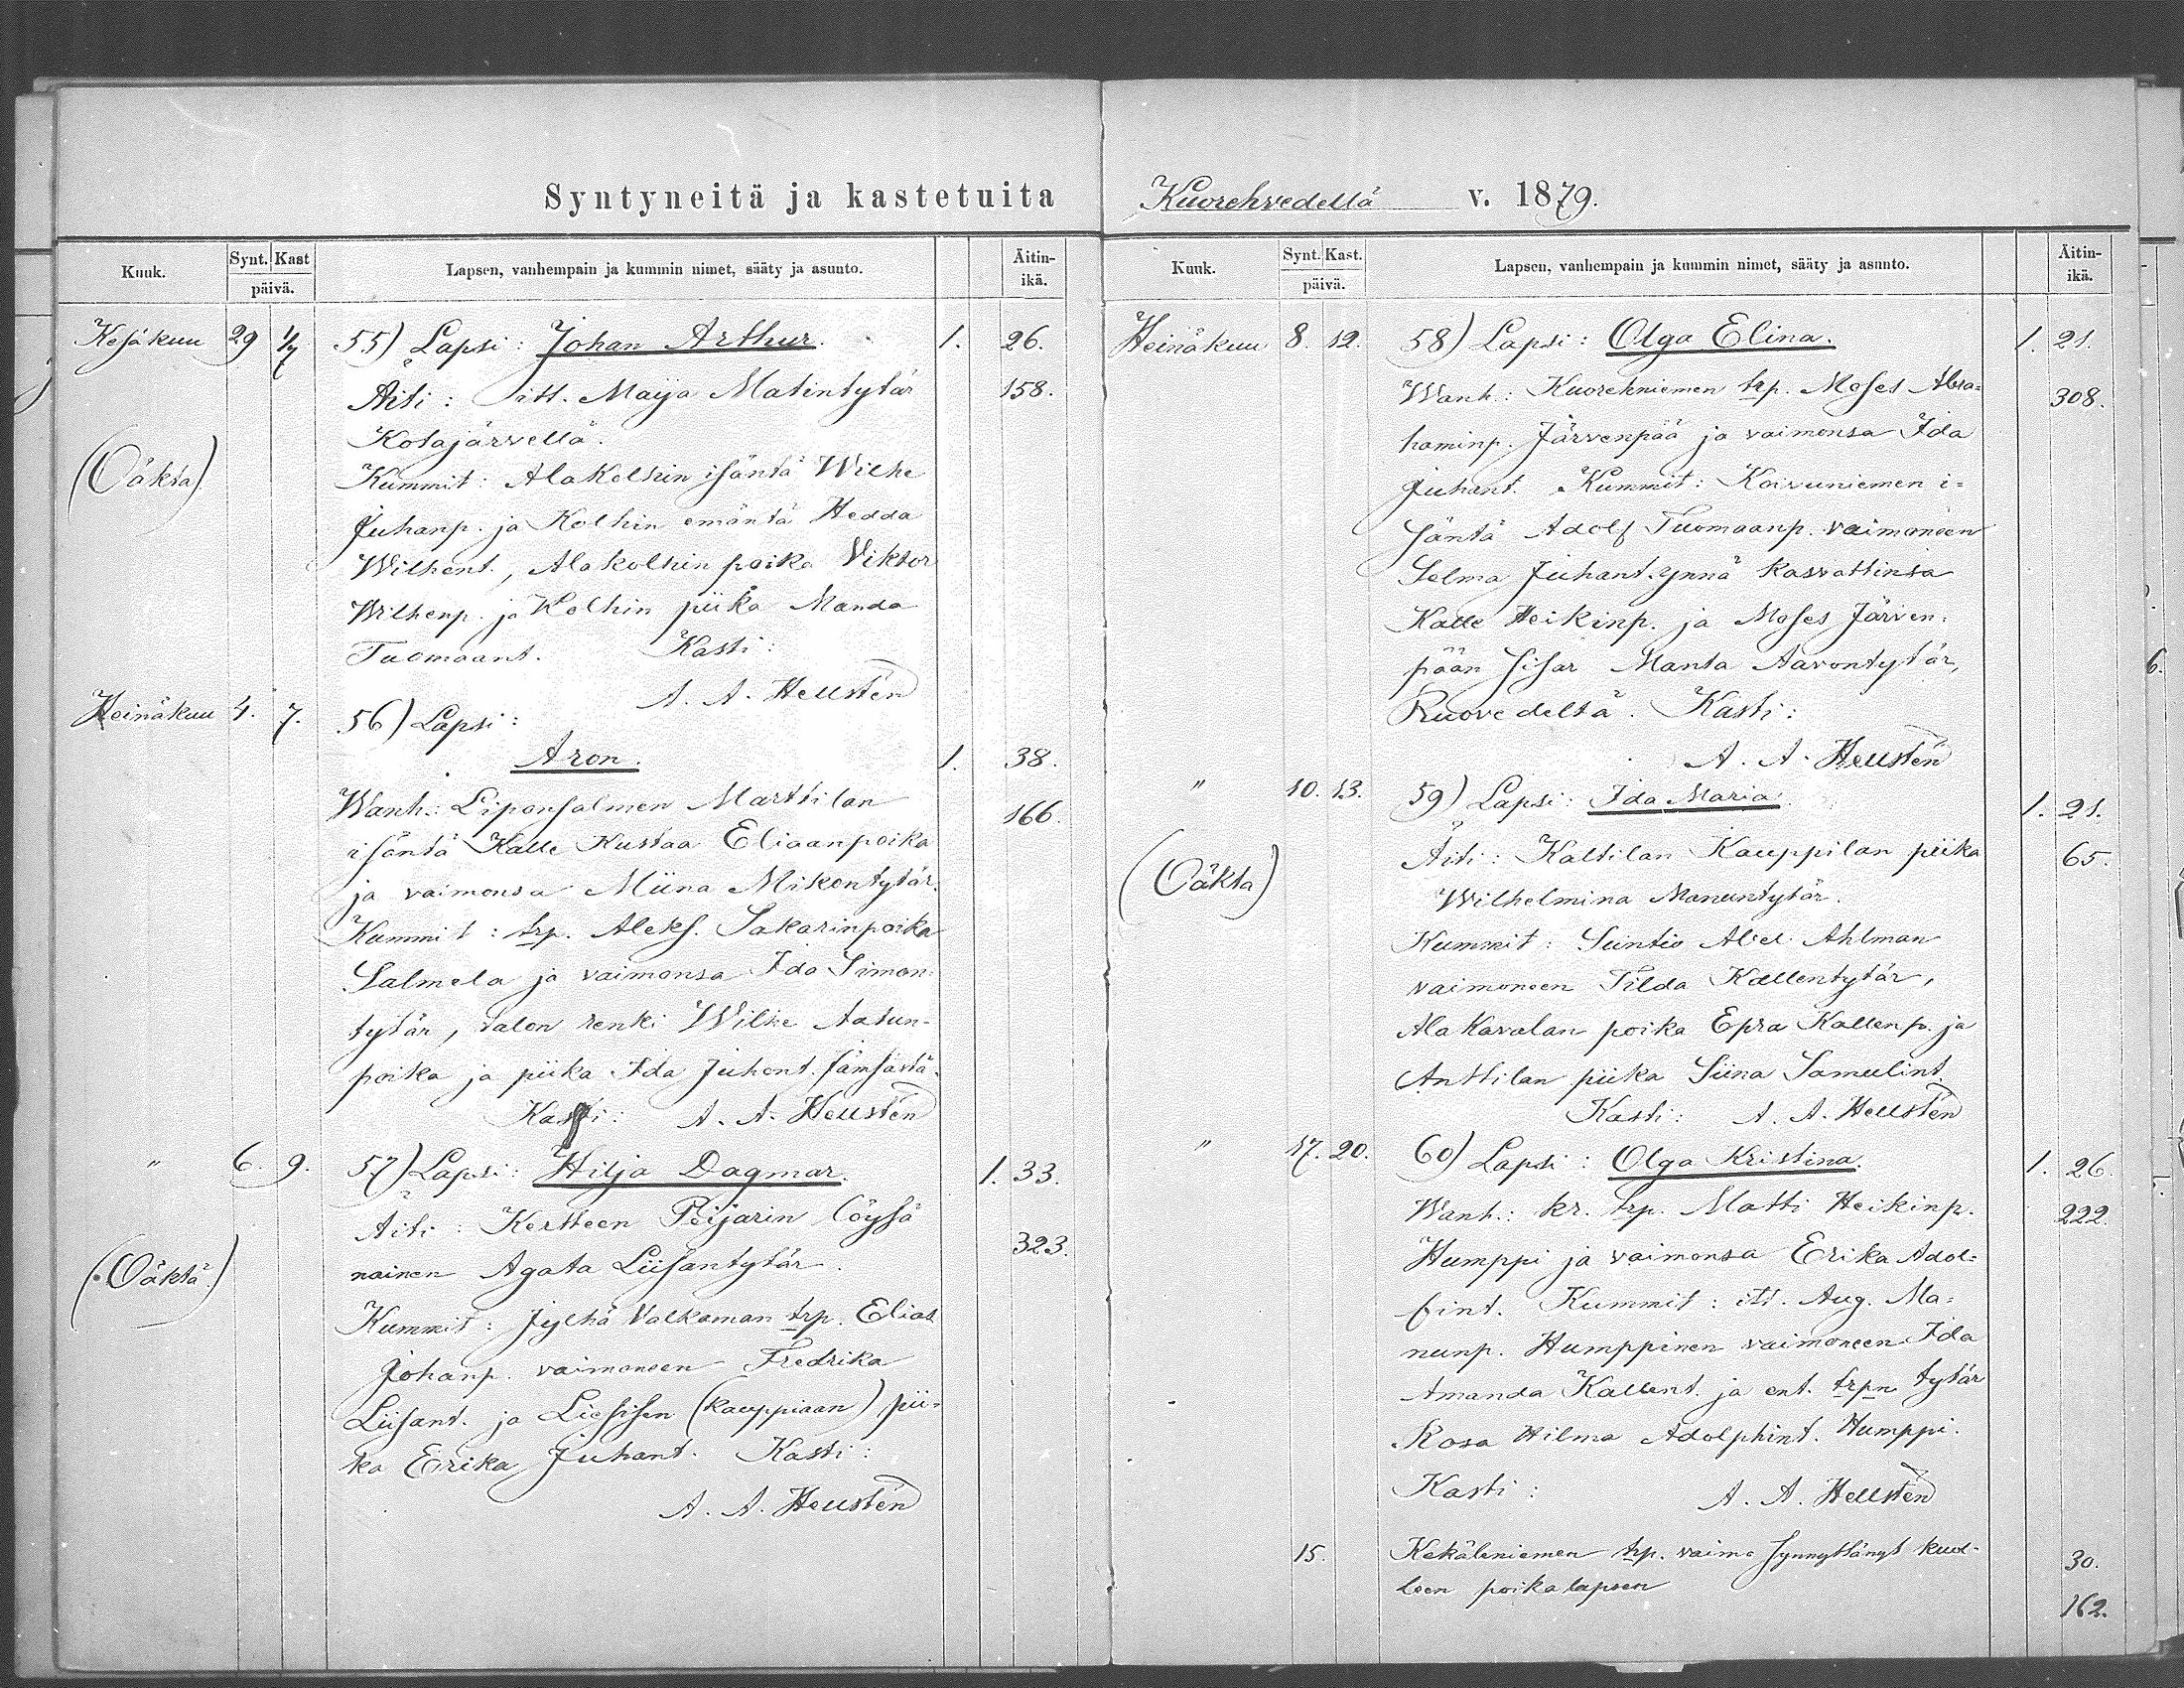 Syntyneitä ja kastetuita
Kuuk. Synt. Kast päivä. Lapsen, vanhempain ja kummin nimet, sääty ja asunto. Äitin-ikä.
Kesäkuu 29 1/7 55) Lapsi: Johan Arthur. 1. 26.
Äiti: itt. Maija Matintytär 158.
Kotajärvellä.
(Oäkta) Kummit: AlaKolhin isäntä Wilhe
Juhanp. ja Kolhin emäntä Hedda
Wilhent., Alakolhin poika Viktor
Wilhenp. ja Kolhin piika Manda
Tuomaant. Kasti:
A. A. Hellstén
Heinäkuu 4. 7. 56) Lapsi:
Aron. 1. 38.
Wanh.: Liponsalmen Marttilan 166.
isäntä Kalle Kustaa Eliaanpoika
ja vaimonsa Miina Mikontytär.
Kummit: trp. Aleks. Sakarinpoika
Salmela ja vaimonsa Ida Simon-
tytär, talon renki Wilhe Aatun-
poika ja piika Ida Juhont. Jämsästä.
Kasti: A. A. Hellstén
" 6. 9. 57) Lapsi: Hilja Dagmar. 1. 33.
Äiti: Kertteen Peijarin löysä 323.
(Oäktä) nainen Agata Liisantytär.
Kummit: Jylhä Valkaman trp. Elias
Johanp. vaimoneen Fredrika
Liisant. ja Liesisen (kauppiaan) pii-
ka Erika Juhant. Kasti:
A. A. Hellstén
Kuorehvedellä v. 1879.
Kuuk. Synt. Kast. päivä. Lapsen, vanhempain ja kummin nimet, sääty ja asunto. Äitin-ikä.
Heinäkuu 8. 12. 58) Lapsi: Olga Elina. 1. 21.
Wanh.: Kuorehniemen trp. Moses Abra= 308.
haminp. Järvenpää ja vaimonsa Ida
Juhant. Kummit: Koivuniemen i=
säntä Adolf Tuomaanp. vaimoneen
Selma Juhant. ynnä kasvattinsa
Kalle Heikinp. ja Moses Järven-
pään sisar Manta Aavontytär,
Ruovedeltä. Kasti:
A. A. Hellstén
" 10. 13. 59) Lapsi: Ida Maria. 1. 21.
Äiti: Kaltilan Kauppilan piika 65.
(Oäkta) Wilhelmina Manuntytär.
Kummit: Suntio Abel Ahlman
vaimoneen Tilda Kallentytär,
Ala Kavalan poika Epra Kallenp. ja
Anttilan piika Siina Samulint.
Kasti: A. A. Hellstén
" 17. 20. 60) Lapsi: Olga Kristina. 1. 26.
Wanh.: kr. trp. Matti Heikinp. 222.
Humppi ja vaimonsa Erika Adol=
fint. Kummit: itt. Aug. Ma=
nunp. Humppinen vaimoneen Ida
Amanda Kallent. ja ent. trpn tytär
Rosa Hilma Adolphint. Humppi.
Kasti: A. A. Hellstén
15. Kekäleniemen trp. vaimo synnyttänyt kuol- 30.
leen poikalapsen
162.